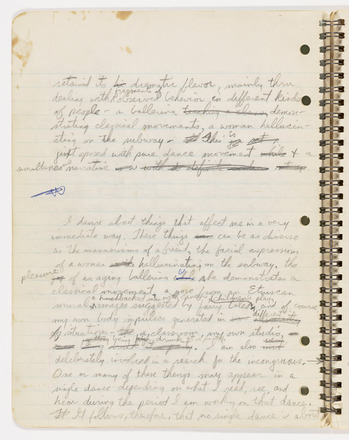 retained its dramatic flavor, mainly thru
fragments of
dealing with observed behavior in different kinds
of people - a ballerina teaching a class demon-
strating classical movements, a woman hallucin-
ating on the subway. This is
juxtaposed with pure dance movement & a
small narrative
I dance about things that affect me in a very
immediate way. These things can be as diverse
as the mannerisms of a friend, the facial expression
of a woman hallucinating on the subway, the
pleasure
of an aging ballerina as she demonstrates a
classical movement, a pose from an Etruscan
mural, a
images suggested by children's play and of course
my own body impulses generated in different
situations - a classroom, my own studio,
I am also
deliberately involved in a search for the incongruous.
One or many of these things may appear in a
single dance depending on what I read, see, and
hear during the period I am working on that dance.
It follows, therefore, that no single dance is about